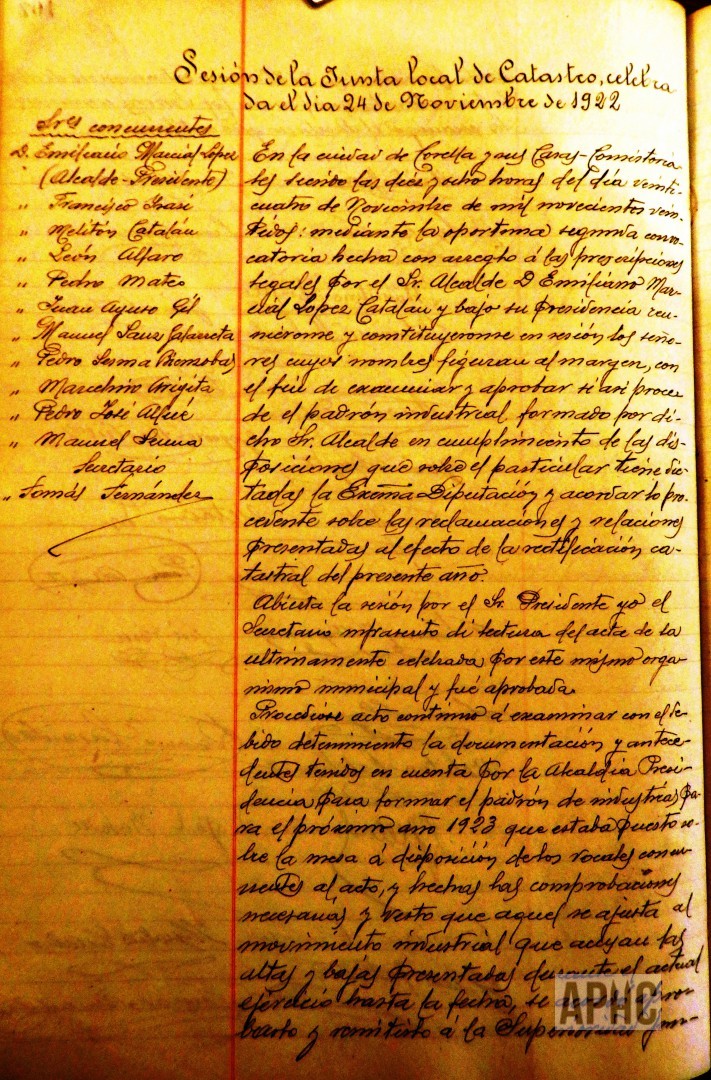 Sesión de la Junta local de Catastro, celebra
da el dia 24 de Noviembre de 1922
Sres concurrentes
D. Emiliano Marcial López
(Alcalde-Presidente)
" Francisco
" Melitón Catalán
" León Alfaro
" Pedro Mateo
" Juan Ayuso Gil
" Manuel Sanz
" Pedro Sesma
" Marcelino Arigita
" Pedro José
" Manuel Sesma
Secretario
" Tomás Fernández
En la ciudad de Corella y sus Casas-Consistoria
les siendo las diez y ocho horas del día veinti
cuatro de Noviembre de mil novecientos vein-
tidos: mediante la oportuna segunda convo
catoria hecha con arreglo á las prescripciones
legales por el Sr. Alcalde D Emiliano Mar-
cial López Catalán y bajo su presidencia reu-
nieronse y constituyeronse en sesión los seño-
res cuyos nombres figuran al margen, con
el fin de examinar y aprobar si asi proce-
de el padrón industrial formado por di-
cho Sr. Alcalde en cumplimiento de las dis-
posiciones que sobre el particular tiene dic
tadas la Excma Diputación y acordar lo pro-
cedente sobre las reclamaciones y relaciones
presentadas al efecto de la rectificación ca-
tastral del presente año.
Abierta la sesión por el Sr. Presidente yo el
Secretario infrascrito di lectura del acta de la
ultimamente celebrada por este mismo orga-
nismo municipal y fué aprobada.
Procediose acto continuo á examinar con el de-
bido detenimiento la documentación y antece-
dentes tenidos en cuenta por la Alcaldia Presi-
dencia para formar el padrón de industrias pa-
ra el próximo año 1923 que estaba puesto so-
bre la mesa á disposición de los vocales concu-
rrentes al acto, y hechas las comprobaciones
necesarias y visto que aquel se ajusta al
movimiento industrial que acusan las
altas y bajas presentadas durante el actual
ejercicio hasta la fecha, se acordó apro-
barlo y remitirlo á la Superioridad
APHC